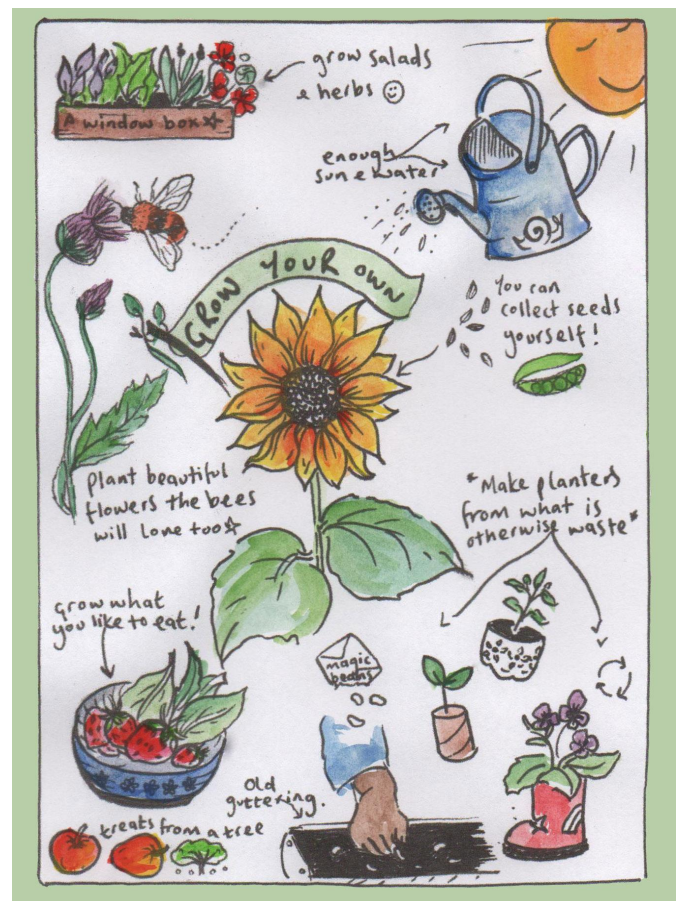 grow salads
& herbs
A window box
enough
sun & water
GROW YOUR OWN
You can
collect seeds
yourself!
plant beautiful
flowers the bees
will love too
*Make planters
from what is
otherwise waste*
grow what
you like to eat!
magic
beans
Old
guttering.
treats from a tree